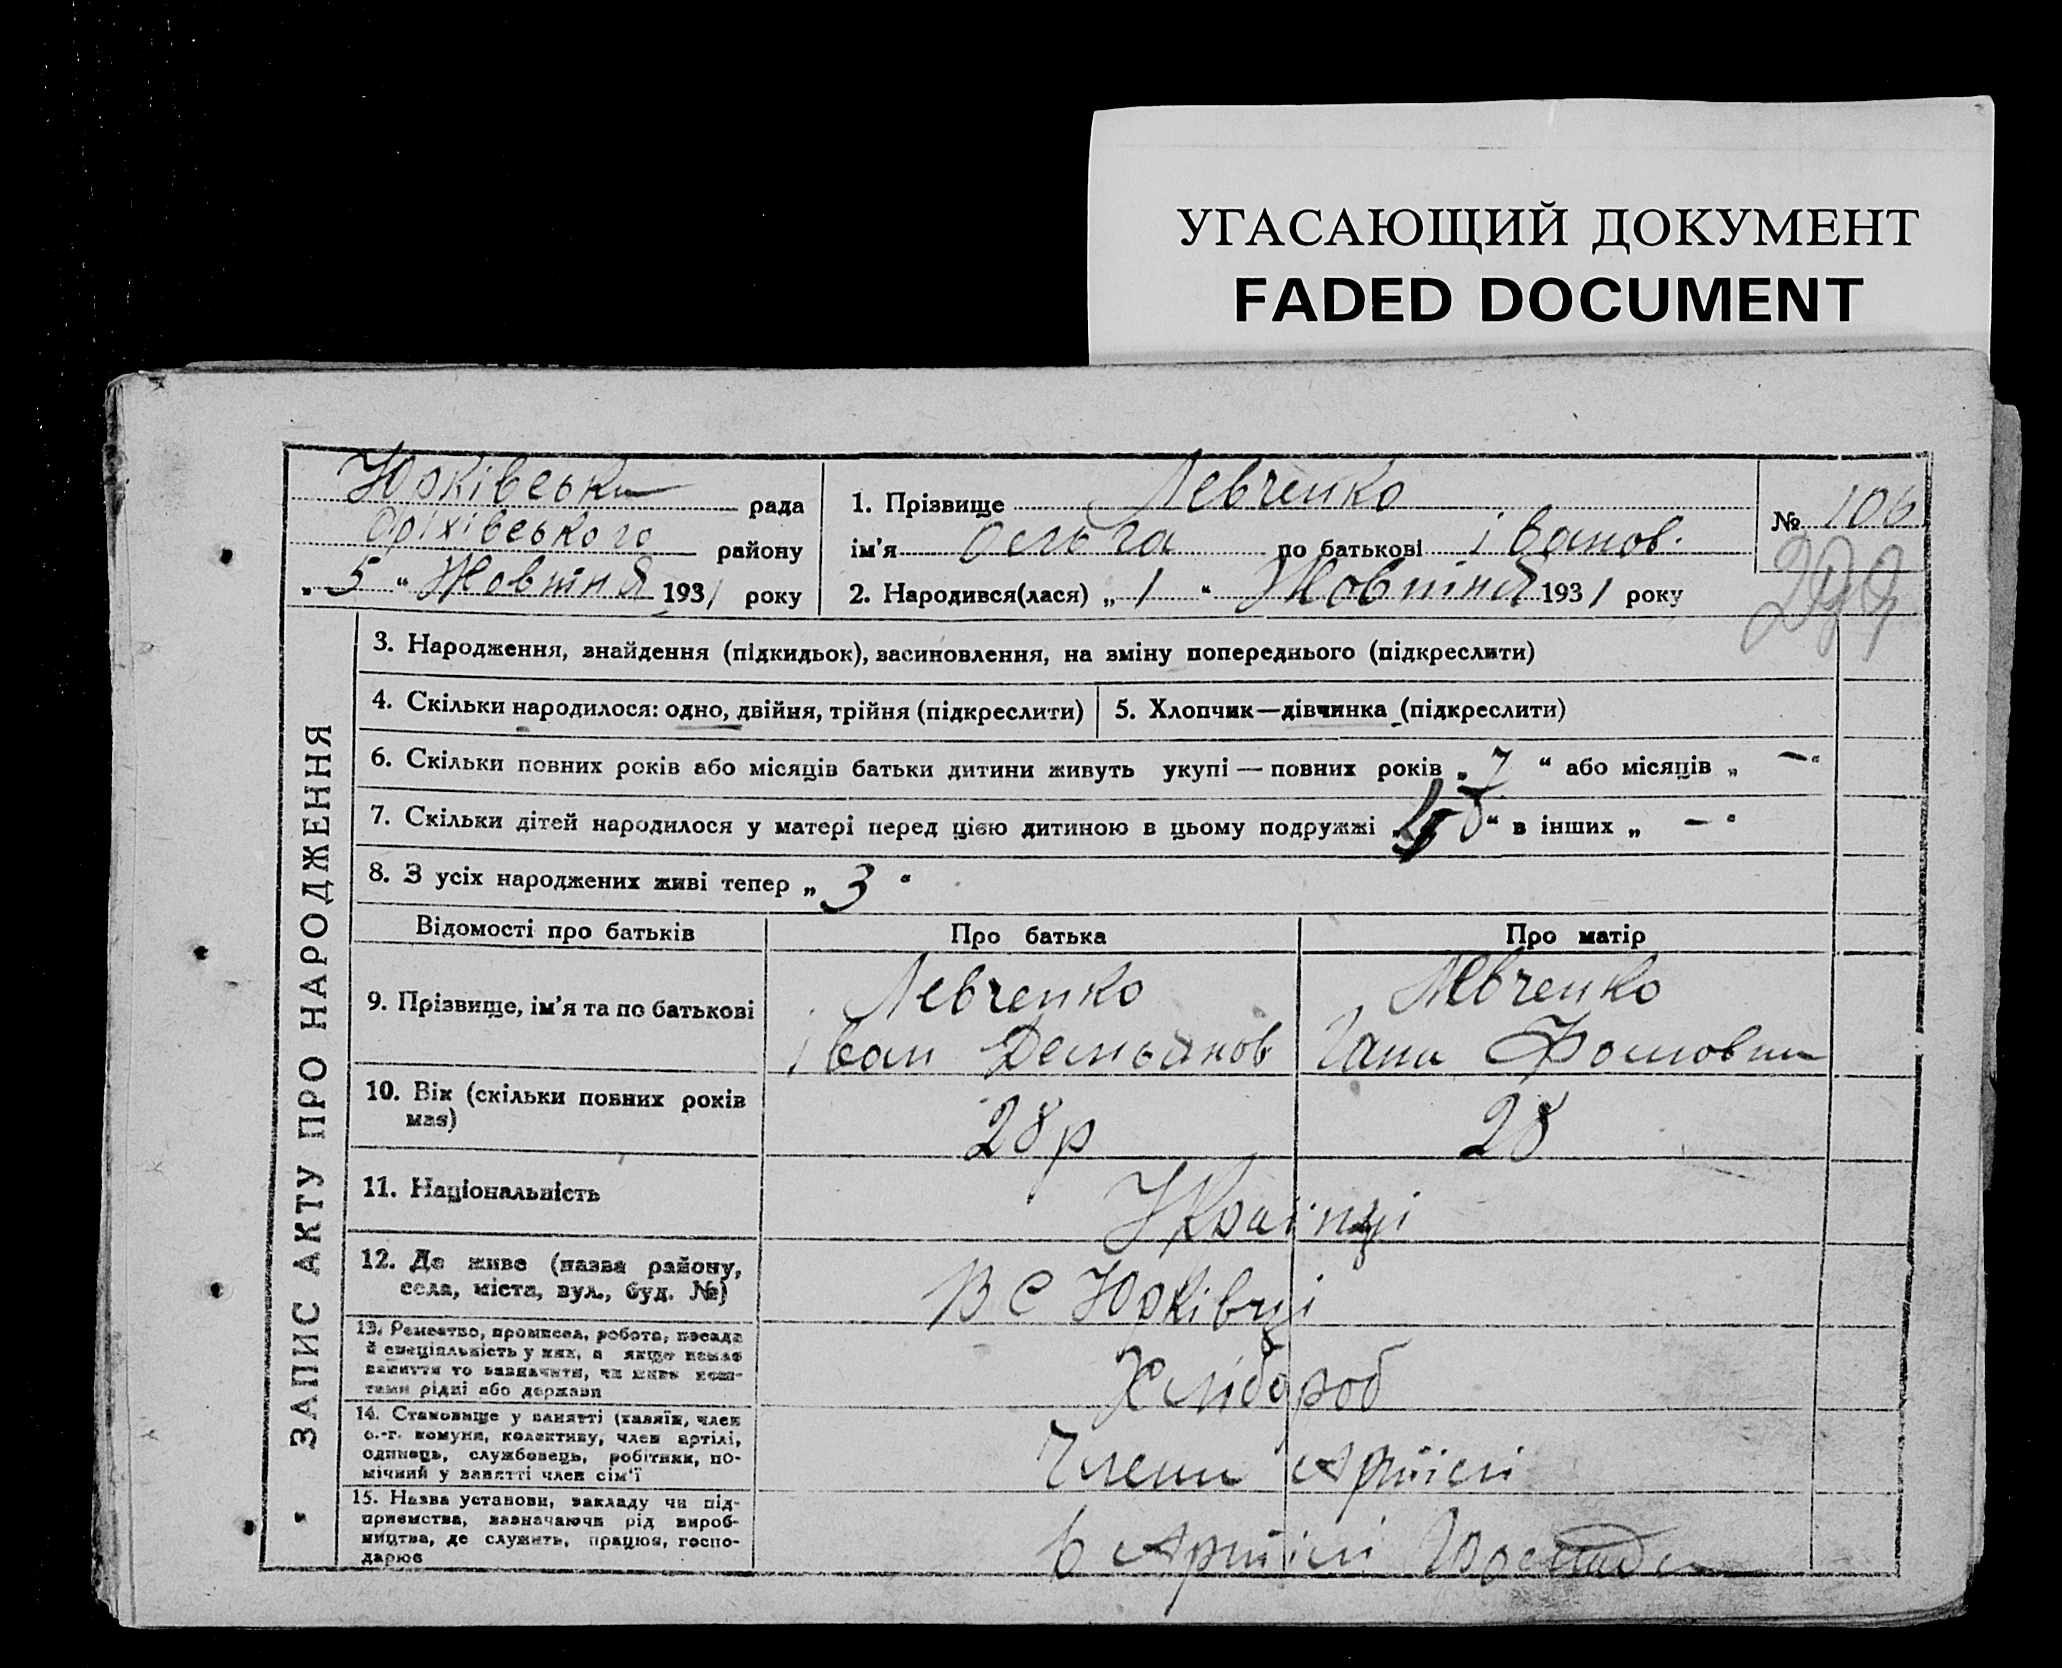 УГАСАЮЩИЙ ДОКУМЕНТ
FADED DOCUMENT
Юрківська рада
Оріхівського району
„ 5 “ Жовтня 1931 року
1. Прізвище Левченко
ім'я Ольга по батькові Іванов.
2. Народився(лася) „ 1 “ Жовтня 1931 року
№ 106
ЗАПИС АКТУ ПРО НАРОДЖЕННЯ
3. Народження, знайдення (підкидьок), засиновлення, на зміну попереднього (підкреслити)
4. Скільки народилося: одно, двійня, трійня (підкреслити)
5. Хлопчик—дівчинка (підкреслити)
6. Скільки повних років або місяців батьки дитини живуть укупі — повних років „ 7 “ або місяців „ — “
7. Скільки дітей народилося у матері перед цією дитиною в цьому подружжі „ “ в інших „ — “
8. З усіх народжених живі тепер „ 3 “
Відомості про батьків
Про батька
Про матір
9. Прізвище, ім'я та по батькові
Левченко
Іван Демьянов
Левченко
Гана Фомовна
10. Вік (скільки повних років
має)
28 р
28
11. Національність
Українці
12. Де живе (назва району,
села, міста, вул., буд. №)
В С Юрківці
13. Ремество, промисел, робота, посада
й спеціяльність у них, а якщо немає
заняття то зазначити, чи живе кош-
тами рідні або держави
Хлібороб
14. Становище у занятті (хазяїн, член
с.-г. комуни, колективу, член артілі,
одинець, службовець, робітник, по-
мічний у занятті член сім'ї
Члени Артілі
15. Назва установи, закладу чи під-
приємства, зазначаючи рід вироб-
ництва, де служить, працює, госпо-
дарює
в Артілі